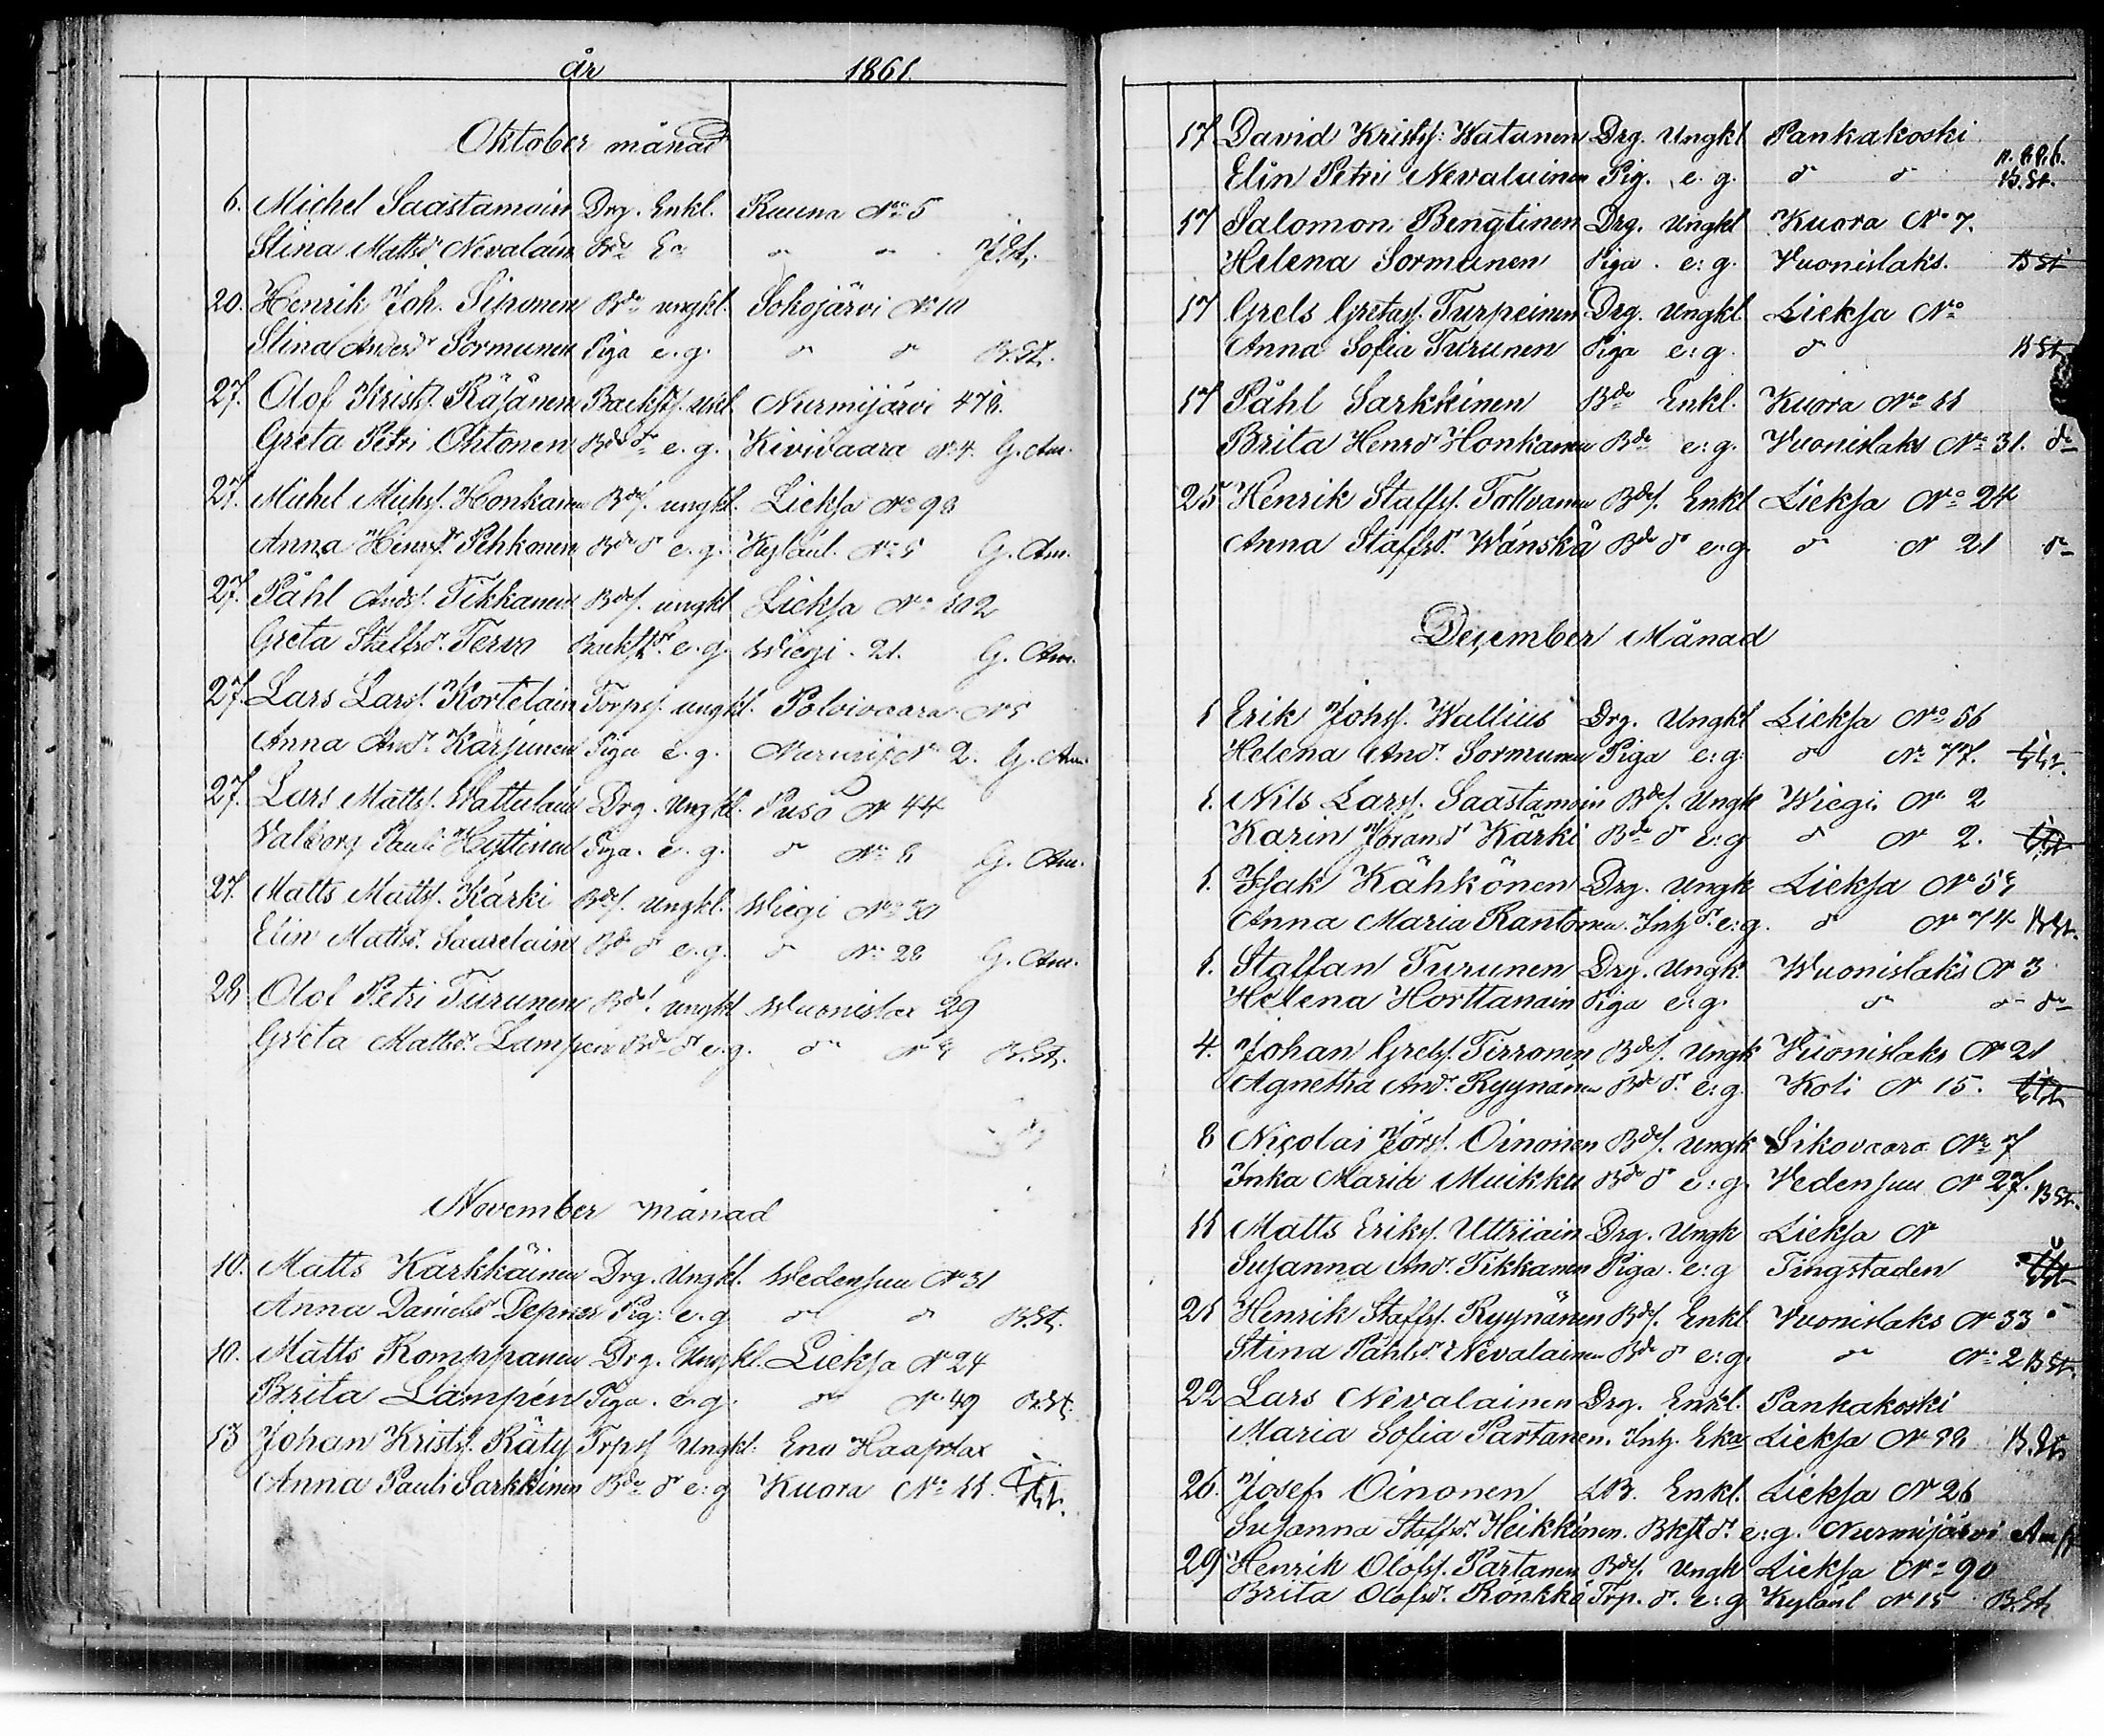 år 1861
Oktober månad
6. Michel Saastamoin Drg. Enkl. Ruuna No 5
Stina Mattsdr Nevalain
20. Henrik Joh. Siponen Bde ungkl. Sokojärvi No 10
Stina Andersdr Sormunen Piga e. g. do do B.St.
27. Olof Kristsf. Räsänen Backstf. ukl. Nurmijärvi 47
Greta Petri Ohtonen Bde dr e. g. Kivivaara N. 4. G. Am.
27. Michel Michsf. Honkanen Bdes. ungkl. Lieksa No 98
Anna Henrsdr Pehkonen Bde dr e. g. Kylänl. No 5 G. Am.
27. Påhl Andsf. Tikkanen Bdes. ungkl Lieksa No 102
Greta Staffsdr. Tervo Backstdr. e. g. Wiegi. 21. G. Am.
27. Lars Larsf. Kortelain Torpsf. ungkl. Polvivaara N 5
Anna Andr. Karjunen Piga e. g. Nurmij N 2. G. Am.
27. Lars Mattsf. Wattulain Drg. Ungkl. Puso N 44
Valborg Pauli Hyttinen Piga. e. g. do No G. Am.
27. Matts Mattsf. Kärki Bdes. Ungkl. Wiegi No 30
Elin Mattsdr. Saarelain Bde dr e. g. do No 28 G. Am.
28 Olof Petri Turunen Bdes. ungkl Wuonislax 29
Greta Mattsdr. Lampen Bde dr e. g. do No B.St.
November månad
10. Matts Kärkkäinen Drg. Ungkl. Wedensuu No 31
Anna Danielsdr Pig: e. g do do B.St.
10. Matts Romppanen Drg. Ungkl. Lieksa No 24
Brita Lampén Piga. e. g. do No 49 B.St.
13 Johan Kristsf. Räty Trpsf Ungkl: Eno Haapolax
Anna Pauli Sarkkinen Bde dr e: g Kuora No 11.
17 David Kristsf: Watanen Drg. Ungkl Pankakoski
Elin Petri Nevalainen Pig. e. g. do do B.St.
17 Salomon Bengtinen Drg. Ungkl Kuora No 7.
Helena Sormunen Piga. e: g. Vuonislaks. B St
17 Grels Gretasf. Turpeinen Drg. Ungkl. Lieksa No
Anna Sofia Turunen Piga e: g. do B St
17 Påhl Sarkkinen Bde Enkl. Kuora No 11
Brita Henrsdr Honkanen Bde e: g. Vuonislaks No 31. do
25 Henrik Staffsf. Tolvanen Bdes. Enkl Lieksa No 24
Anna Staffsdr. Wänskä Bde dr e: g do N 21 do
December Månad
1 Erik Johsf. Wallius Drg. Ungkl Lieksa No 56
Helena Andr. Sormunen Piga e: g. do No 77.
1. Nils Larsf. Saastamoin Bdes. Ungk Wiegi No 2
Karin Göransdr Kärki Bde dr e: g do N 2.
1. Isak Kähkönen Drg. Ungk Lieksa No 5
Anna Maria Rantonen. Inh. dr. e: g. do No 74 B.St.
1. Staffan Turunen Drg. Ungk. Wuonislaks No 3
Helena Horttanain Piga e: g. do do do
4. Johan Grelsf. Tirronen Bdes. Ungk Vuonislaks No 21
Agnetha Andr. Ryynänen Bde dr. e: g. Koli No 15.
8 Nicolai Jörsf. Oinonen Bdes. Ungk Sikovaara No 7
Inka Maria Muikku Bde dr e: g. Vedensuu No 27. B St.
15 Matts Eriksf. Uttriain Drg. Ungk Lieksa N
Susanna Andr. Tikkanen Piga. e: g Tingstaden
21 Henrik Staffsf. Ryynänen Bdes. Enkl Vuonislaks No 33
Stina Påhlsdr. Nevalainen Bde dr e: g. do No 2 B St.
22 Lars Nevalainen Drg. Enkl. Pankakoski
Maria Sofia Partanen. Inh. Eka Lieksa No B. St
26. Josef Oinonen LB. Enkl. Lieksa No 26
Susanna Staffsdr. Heikkinen. Bkst dr. e: g. Nurmijärvi Am
29 Henrik Olofsf. Partanen Bdes. Ungk Lieksa No 90
Brita Olofsdr. Rönkkö Trp. dr. e: g Kylänl No 15 B.St